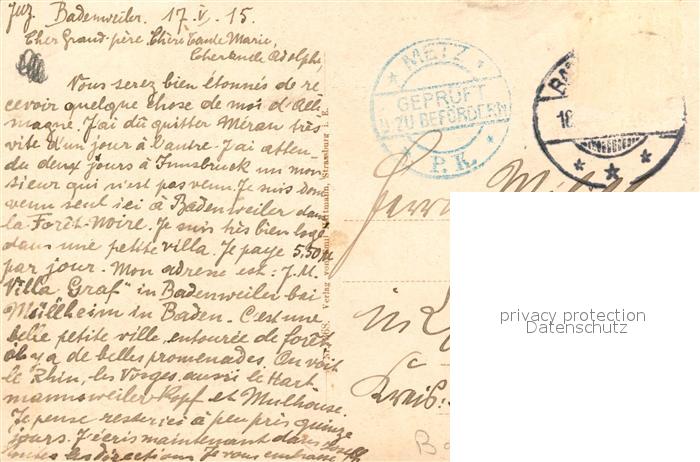 Badenweiler. 17. V. 15.
Cher Grand-père, Chère Tante Marie,
Cher oncle Adolphe,
Vous serez bien étonnés de re,
cevoir quelque chose de moi d'Alle,
magne. J'ai dû quitter Méran très
vite d'un jour à l'autre. J'ai atten,
du deux jours à Innsbruck un mon,
sieur qui n'est pas venu. Je suis donc
venu seul ici à Badenweiler dans
la Forêt-Noire. Je suis très bien logé
dans une petite villa. Je paye 5,50 M
par jour. Mon adresse est: J. M.
"Villa Graf" in Badenweiler bei
Müllheim in Baden. C'est une
belle petite ville entourée de forêts
où il y a de belles promenades. On voit
le Rhin, les Vosges aussi le Hart,
mannsweiler-Kopf et Mulhouse.
Je pense rester ici à peu près quinze
jours. J'écris maintenant dans
toutes les directions. Je vous embrasse
METZ
GEPRÜFT
U. ZU BEFÖRDERN
P. K.
BAD
18
Herrn
in
Kreis:
Verlag von Strassburg i. E.
privacy protection
Datenschutz